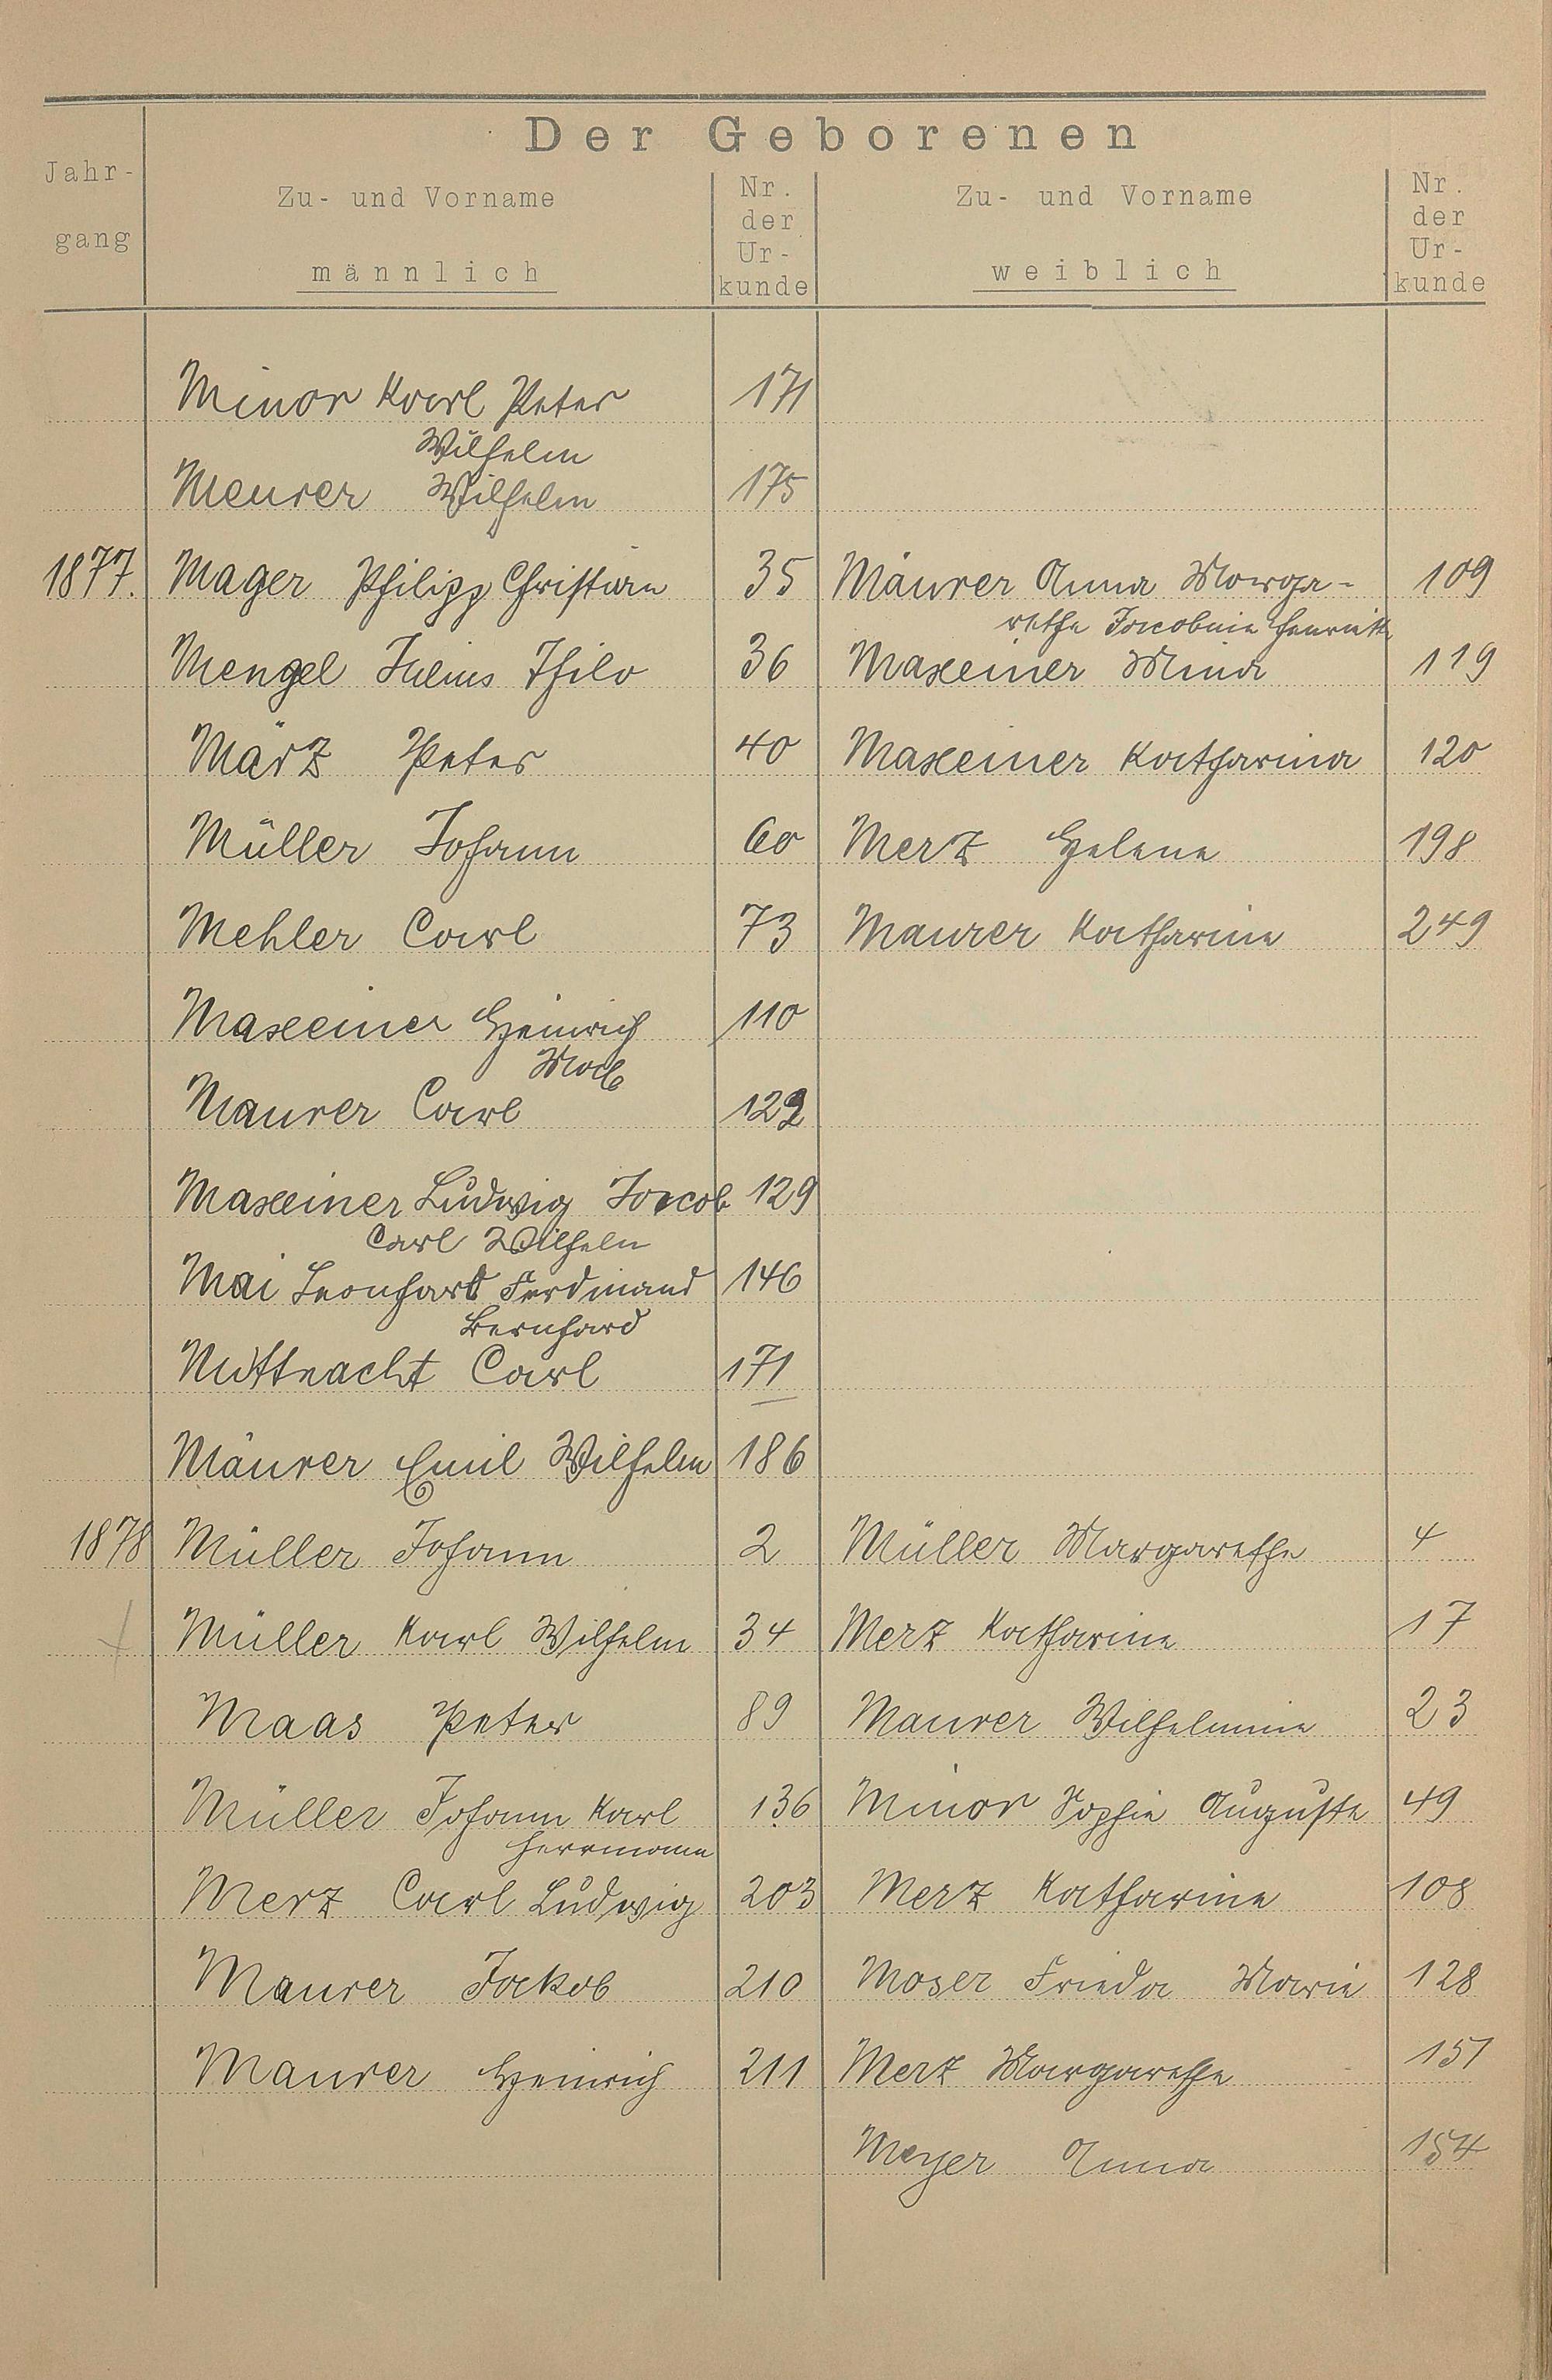 Der Geborenen
Jahr-
gang
Zu- und Vorname
männlich
Nr.
der
Ur-
kunde
Zu- und Vorname
weiblich
Nr.
der
Ur-
kunde
Minor Karl Peter 171
Wilhelm
Meurer Wilhelm 175
1877. Mager Philipp Christian 35 Mäurer Anna Marga- 109
rethe Jacobine Henriette
Mengel Julius Thilo 36 Maxeiner Mina 119
März Peter 40 Maxeiner Katharina 120
Müller Johann 60 Merz Helene 198
Mehler Carl 73 Maurer Katharine 249
Maxeiner Heinrich 110
Maurer Carl 122
Maxeiner Ludwig Jacob 129
Carl Wilhelm
Mai Leonhard Ferdinand 146
Bernhard
Mittnacht Carl 171
Mäurer Emil Wilhelm 186
1878 Müller Johann 2 Müller Margarethe 4
Müller Karl Wilhelm 34 Merz Katharine 17
Maas Peter 89 Maurer Wilhelmine 23
Müller Johann Karl 136 Minor Sophie Auguste 49
Herrmann
Merz Carl Ludwig 203 Merz Katharine 108
Maurer Jakob 210 Moser Frieda Marie 128
Maurer Heinrich 211 Merz Margarethe 151
Meyer Anna 154